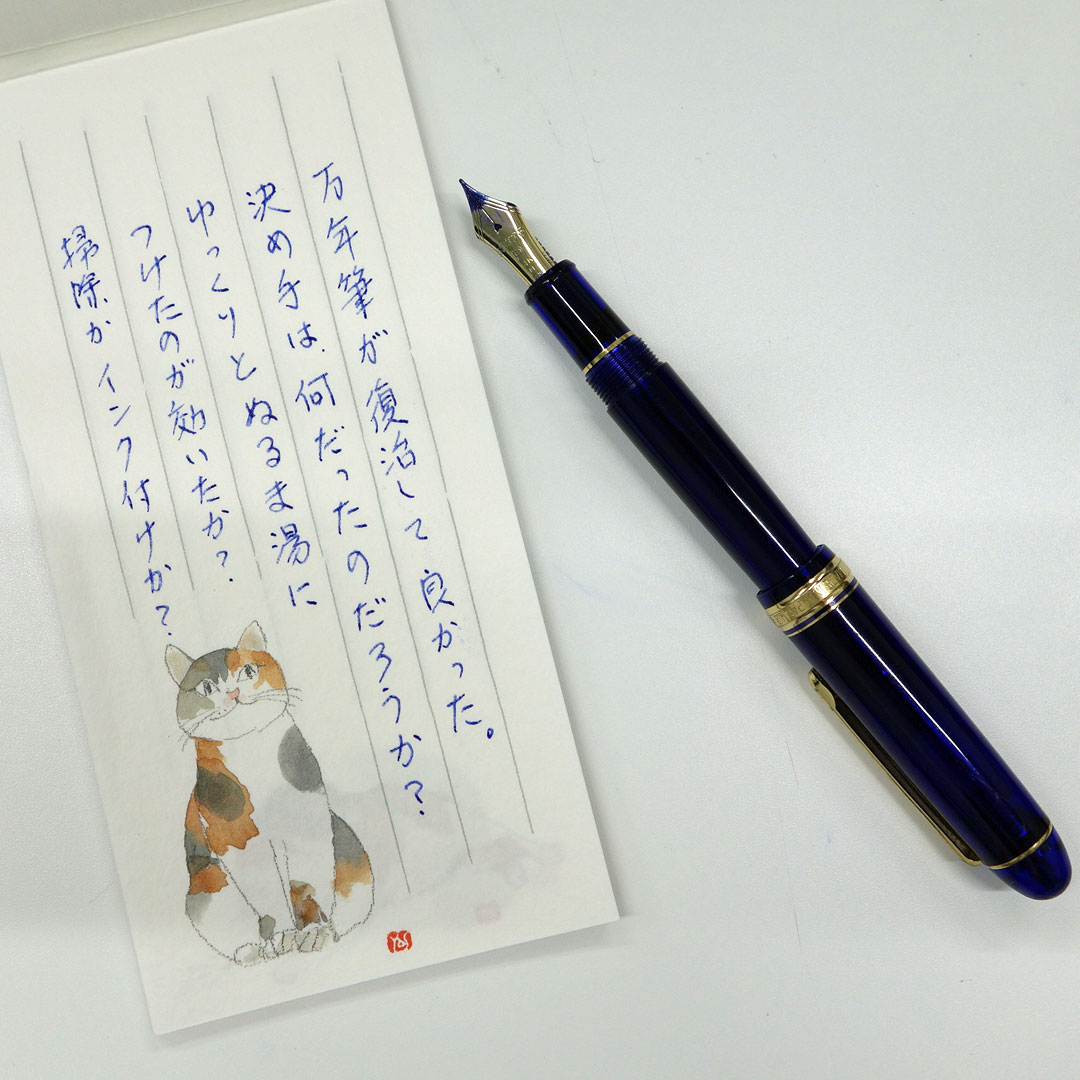 万年筆が復活して良かった。
決め手は、何だったのだろうか？
ゆっくりとぬるま湯に
つけたのが効いたか？
掃除かインク付けか？